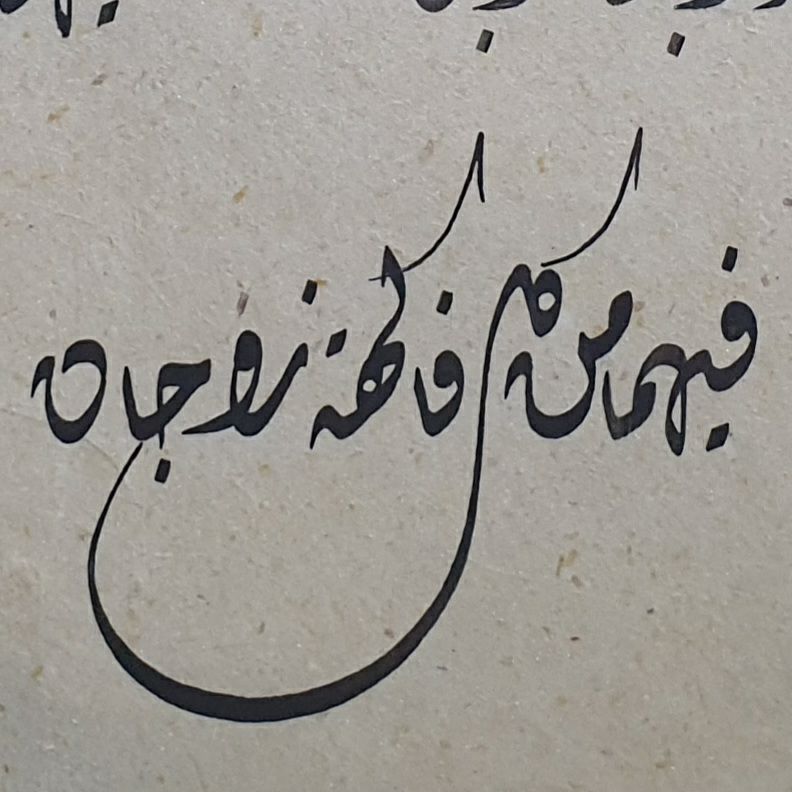 فيهما من كل فاكهة زوجان